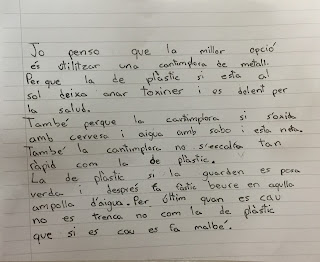 Jo penso que la millor opció
és utilitzar una cantimplora de metall.
Per que la de plàstic si esta al
sol deixa anar toxines i es dolent per
la salud.
També perque la cantimplora si s'oxida
amb cervesa i aigua amb sabo i esta neta.
També la cantimplora no s'escalfa tan
ràpid com la de plàstic.
La de plàstic si la guarden es posa
verda i després fa fàstic beure en aqulla
ampolla d'aigua. Per últim quan es cau
no es trenca no com la de plàstic
que si es cau es fa malbé.